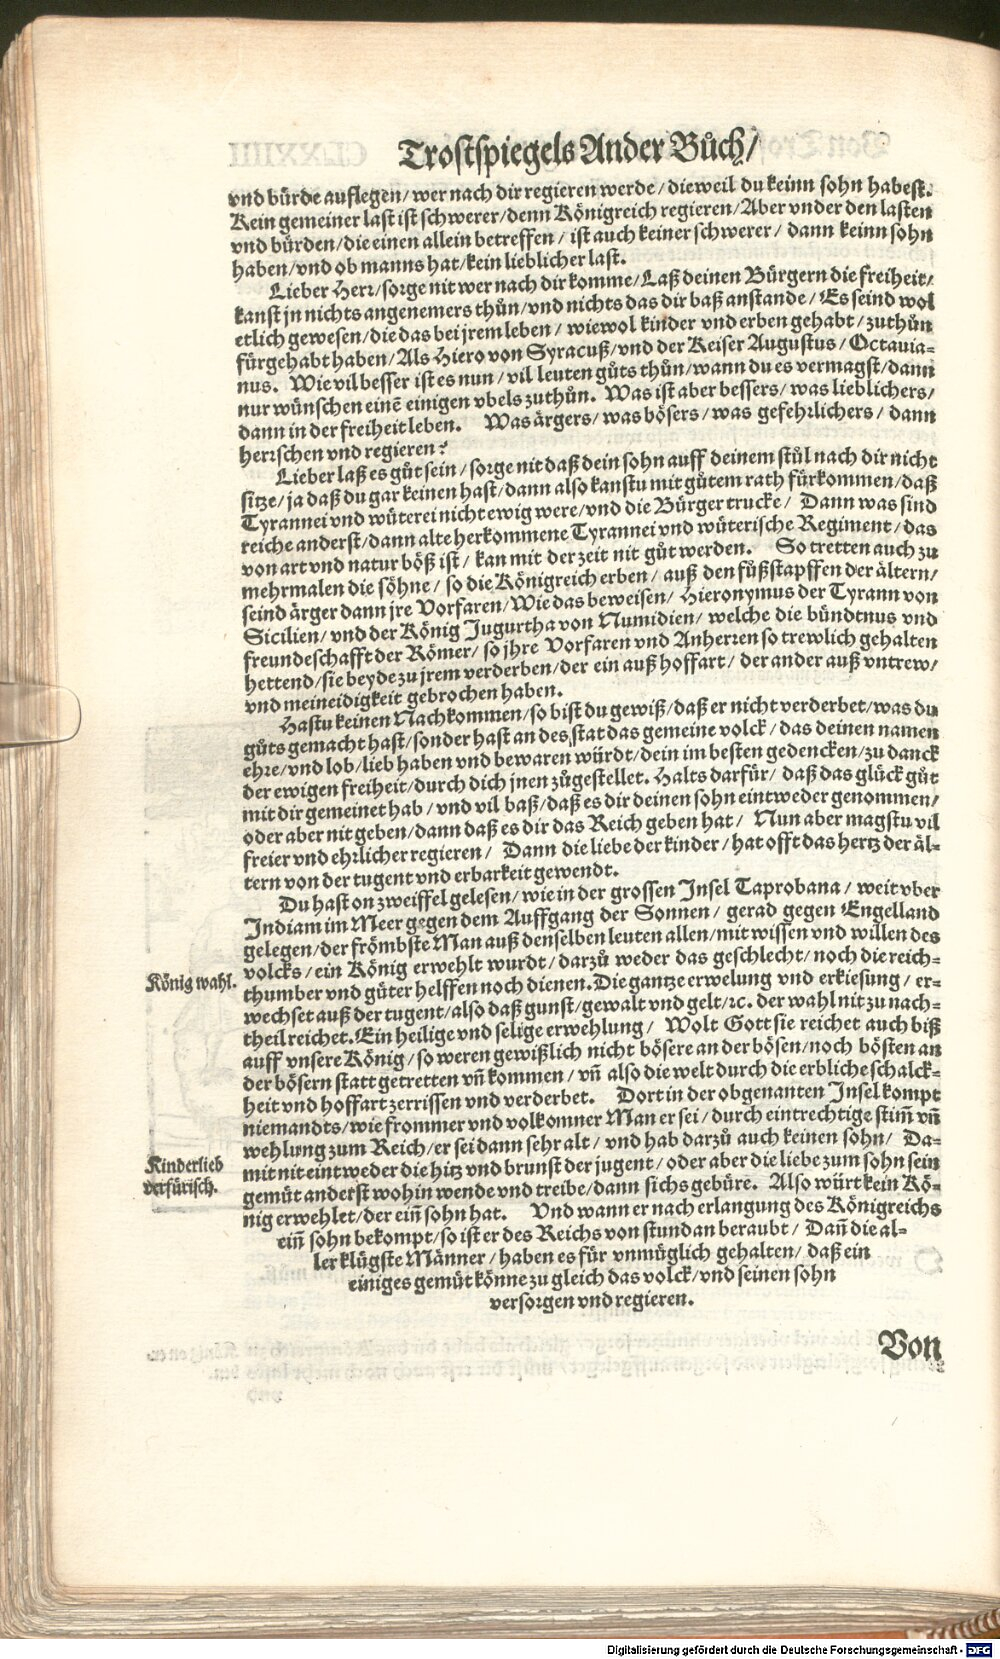 Trostspiegels Ander Bůch/
vnd bürde auflegen/wer nach dir regieren werde/dieweil du keinn sohn habest.
Kein gemeiner last ist schwerer/denn Königreich regieren/Aber vnder den lasten
vnd bürden/die einen allein betreffen/ ist auch keiner schwerer/ dann keinn sohn
haben/vnd ob manns hat/kein lieblicher last.
Lieber Herr/sorge nit wer nach dir komme/Laß deinen Bürgern die freiheit/
kanst jn nichts angenemers thůn/vnd nichts das dir baß anstande/Es seind wol
etlich gewesen/die das bei jrem leben/ wiewol kinder vnd erben gehabt/zuthůn
fürgehabt haben/Als Hiero von Syracuß/vnd der Keiser Augustus/Octauia=
nus. Wie vil besser ist es nun/vil leuten gůts thůn/wann du es vermagst/dann
nur wünschen einē einigen vbels zuthůn. Was ist aber bessers/was lieblichers/
dann in der freiheit leben. Was ärgers/was bösers/was gefehrlichers/ dann
herrschen vnd regieren?
Lieber laß es gůt sein/sorge nit daß dein sohn auff deinem stůl nach dir nicht
sitze/ja daß du gar keinen hast/dann also kanstu mit gůtem rath fürkommen/daß
Tyrannei vnd wüterei nicht ewig were/vnd die Bürger trucke/ Dann was sind
reiche anderst/dann alte herkommene Tyrannei vnd wüterische Regiment/das
von art vnd natur böß ist/ kan mit der zeit nit gůt werden. So tretten auch zu
mehrmalen die söhne/so die Königreich erben/ auß den fůßstapffen der ältern/
seind ärger dann jre Vorfaren/Wie das beweisen/ Hieronymus der Tyrann von
Sicilien/vnd der König Jugurtha von Numidien/ welche die bündtnus vnd
freundeschafft der Römer/so jhre Vorfaren vnd Anherren so trewlich gehalten
hettend/sie beyde zu jrem verderben/der ein auß hoffart/der ander auß vntrew/
vnd meineidigkeit gebrochen haben.
Hastu keinen Nachkommen/so bist du gewiß/daß er nicht verderbet/was du
gůts gemacht hast/sonder hast an des stat das gemeine volck/das deinen namen
ehre/vnd lob/lieb haben vnd bewaren würdt/dein im besten gedencken/zu danck
der ewigen freiheit/durch dich jnen zůgestellet. Halts darfür/ daß das glück gůt
mit dir gemeinet hab/vnd vil baß/daß es dir deinen sohn eintweder genommen/
oder aber nit geben/dann daß es dir das Reich geben hat/ Nun aber magstu vil
freier vnd ehrlicher regieren/ Dann die liebe der kinder/hat offt das hertz der äl=
tern von der tugent vnd erbarkeit gewendt.
Du hast on zweiffel gelesen/wie in der grossen Insel Taprobana/ weit vber
Indiam im Meer gegen dem Auffgang der Sonnen/ gerad gegen Engelland
gelegen/der frömbste Man auß denselben leuten allen/mit wissen vnd willen des
volcks/ein König erwehlt wurdt/darzů weder das geschlecht/noch die reich=
König wahl.
thumber vnd güter helffen noch dienen. Die gantze erwelung vnd erkiesung/ er=
wechset auß der tugent/also daß gunst/gewalt vnd gelt/ꝛc. der wahl nit zu nach=
theil reichet. Ein heilige vnd selige erwehlung/ Wolt Gott sie reichet auch biß
auff vnsere König/so weren gewißlich nicht bösere an der bösen/noch bösten an
der bösern statt getretten vñ kommen/vñ also die welt durch die erbliche schalck=
heit vnd hoffart zerrissen vnd verderbet. Dort in der obgenanten Insel kompt
niemandts/wie frommer vnd volkomner Man er sei/durch eintrechtige stim̄ vñ
wehlung zum Reich/er sei dann sehr alt/ vnd hab darzů auch keinen sohn/ Da=
Kinderlieb
mit nit eintweder die hitz vnd brunst der jugent/oder aber die liebe zum sohn sein
verfürisch.
gemüt anderst wohin wende vnd treibe/dann sichs gebüre. Also würt kein Kö=
nig erwehlet/der eiñ sohn hat. Vnd wann er nach erlangung des Königreichs
eiñ sohn bekompt/so ist er des Reichs von stundan beraubt/ Dañ die al=
ler klügste Männer/haben es für vnmüglich gehalten/daß ein
einiges gemüt könne zu gleich das volck/vnd seinen sohn
versorgen vnd regieren.
Von
Digitalisierung gefördert durch die Deutsche Forschungsgemeinschaft - DFG